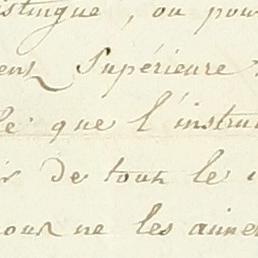 istingue, ou pou
ens Supérieure
le que l'instru
ir de tout le
ous ne les aimer